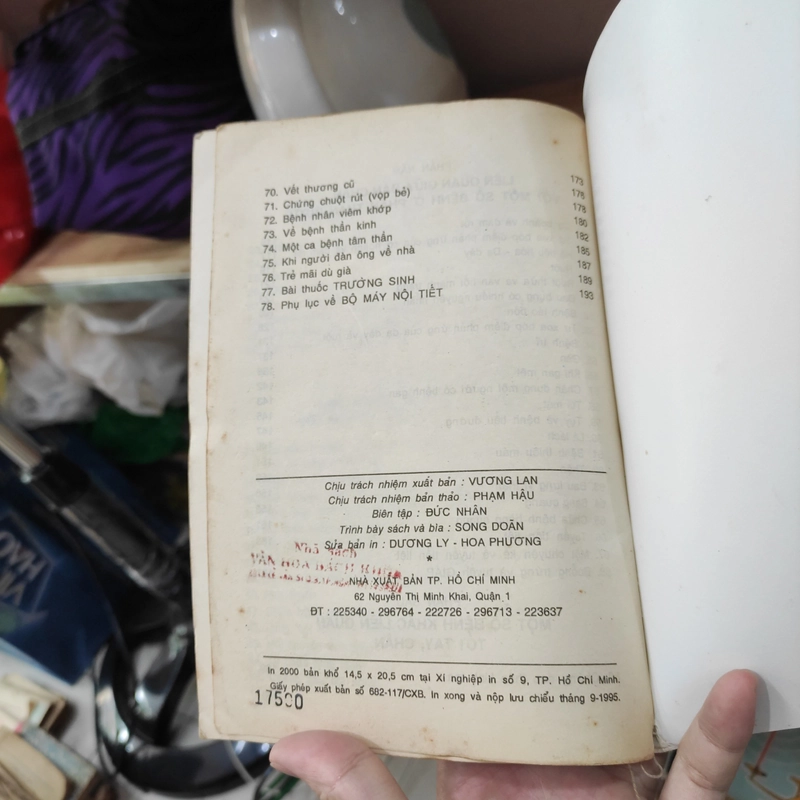 70. Vết thương cũ 173
71. Chứng chuột rút (vọp bẻ) 176
72. Bệnh nhân viêm khớp 178
73. Về bệnh thần kinh 180
74. Một ca bệnh tâm thần 182
75. Khi người đàn ông về nhà 185
76. Trẻ mãi dù già 187
77. Bài thuốc TRƯỜNG SINH 189
78. Phụ lục về BỘ MÁY NỘI TIẾT 193
Chịu trách nhiệm xuất bản : VƯƠNG LAN
Chịu trách nhiệm bản thảo : PHẠM HẬU
Biên tập : ĐỨC NHÂN
Trình bày sách và bìa : SONG DOÂN
Sửa bản in : DƯƠNG LY - HOA PHƯỢNG
*
NHÀ XUẤT BẢN TP. HỒ CHÍ MINH
62 Nguyễn Thị Minh Khai, Quận 1
ĐT : 225340 - 296764 - 222726 - 296713 - 223637
In 2000 bản khổ 14,5 x 20,5 cm tại Xí nghiệp in số 9, TP. Hồ Chí Minh.
Giấy phép xuất bản số 682-117/CXB. In xong và nộp lưu chiểu tháng 9-1995.